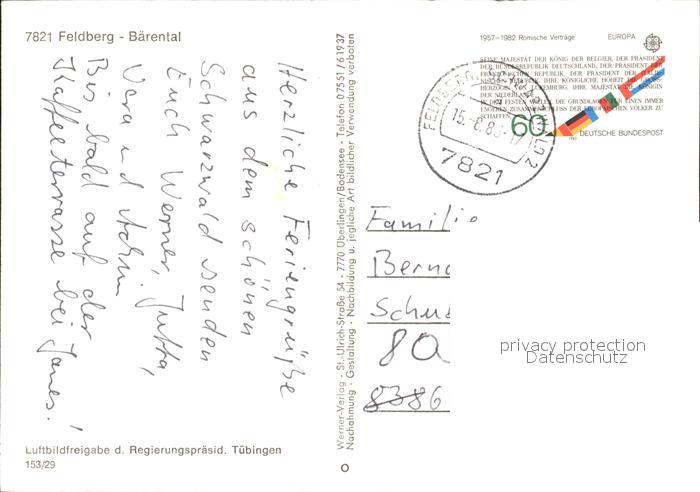 7821 Feldberg - Bärental
Herzliche Feriengrüße
aus dem schönen
Schwarzwald senden
Euch Werner, Jutta,
Vera und Achim
Bis bald auf der
Kaffeeterrasse bei Janes!
Luftbildfreigabe d. Regierungspräsid. Tübingen
153/29
Werner-Verlag · St.-Ulrich-Straße 54 · 7770 Überlingen/Bodensee · Telefon 07551/61937
Nachahmung · Gestaltung · Nachbildung u. jegliche Art bildlicher Verwendung verboten
1957–1982 Römische Verträge EUROPA
SEINE MAJESTÄT DER KÖNIG DER BELGIER, DER PRÄSIDENT
DER BUNDESREPUBLIK DEUTSCHLAND, DER PRÄSIDENT DER
FRANZÖSISCHEN REPUBLIK, DER PRÄSIDENT DER ITALIE-
NISCHEN REPUBLIK, IHRE KÖNIGLICHE HOHEIT DIE GROSS-
HERZOGIN VON LUXEMBURG, IHRE MAJESTÄT DIE KÖNIGIN
DER NIEDERLANDE
IN DEM FESTEN WILLEN, DIE GRUNDLAGEN FÜR EINEN IMMER
ENGEREN ZUSAMMENSCHLUSS DER EUROPÄISCHEN VÖLKER ZU
SCHAFFEN
60
DEUTSCHE BUNDESPOST
FELDBERG, SCHWARZWALD 2
7821
Familie
Bern
Schu
80
8386
privacy protection
Datenschutz